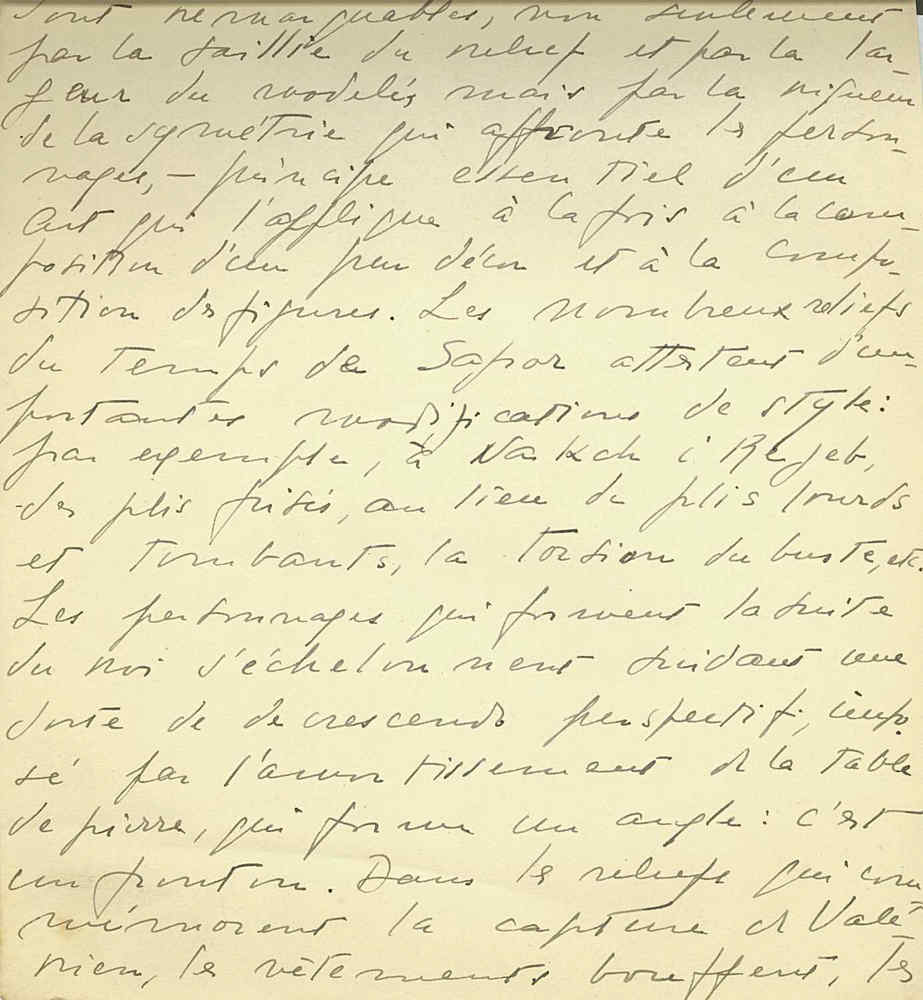 sont remarquables, non seulement
par la saillie du relief et par la lar
geur du modelés mais par la vigueur
de la symétrie qui affronte les person-
nages, – principe essentiel d'un
art qui s'applique à la fois à la com-
position d'un pur décor et à la compo-
sition des figures. Les nombreux reliefs
du temps de Sapor attestent d'im-
portantes modifications de style :
par exemple, à Nakch i Rejeb,
des plis frisés, au lieu de plis lourds
et tombants, la torsion du buste, etc.
Les personnages qui forment la suite
du roi s'échelonnent suivant une
sorte de decrescendo perspectif, impo
sé par l'amortissement de la table
de pierre, qui forme un angle : c'est
un fronton. Dans les reliefs qui com
mémorent la capture de Valé
rien, les vêtements bouffent, les